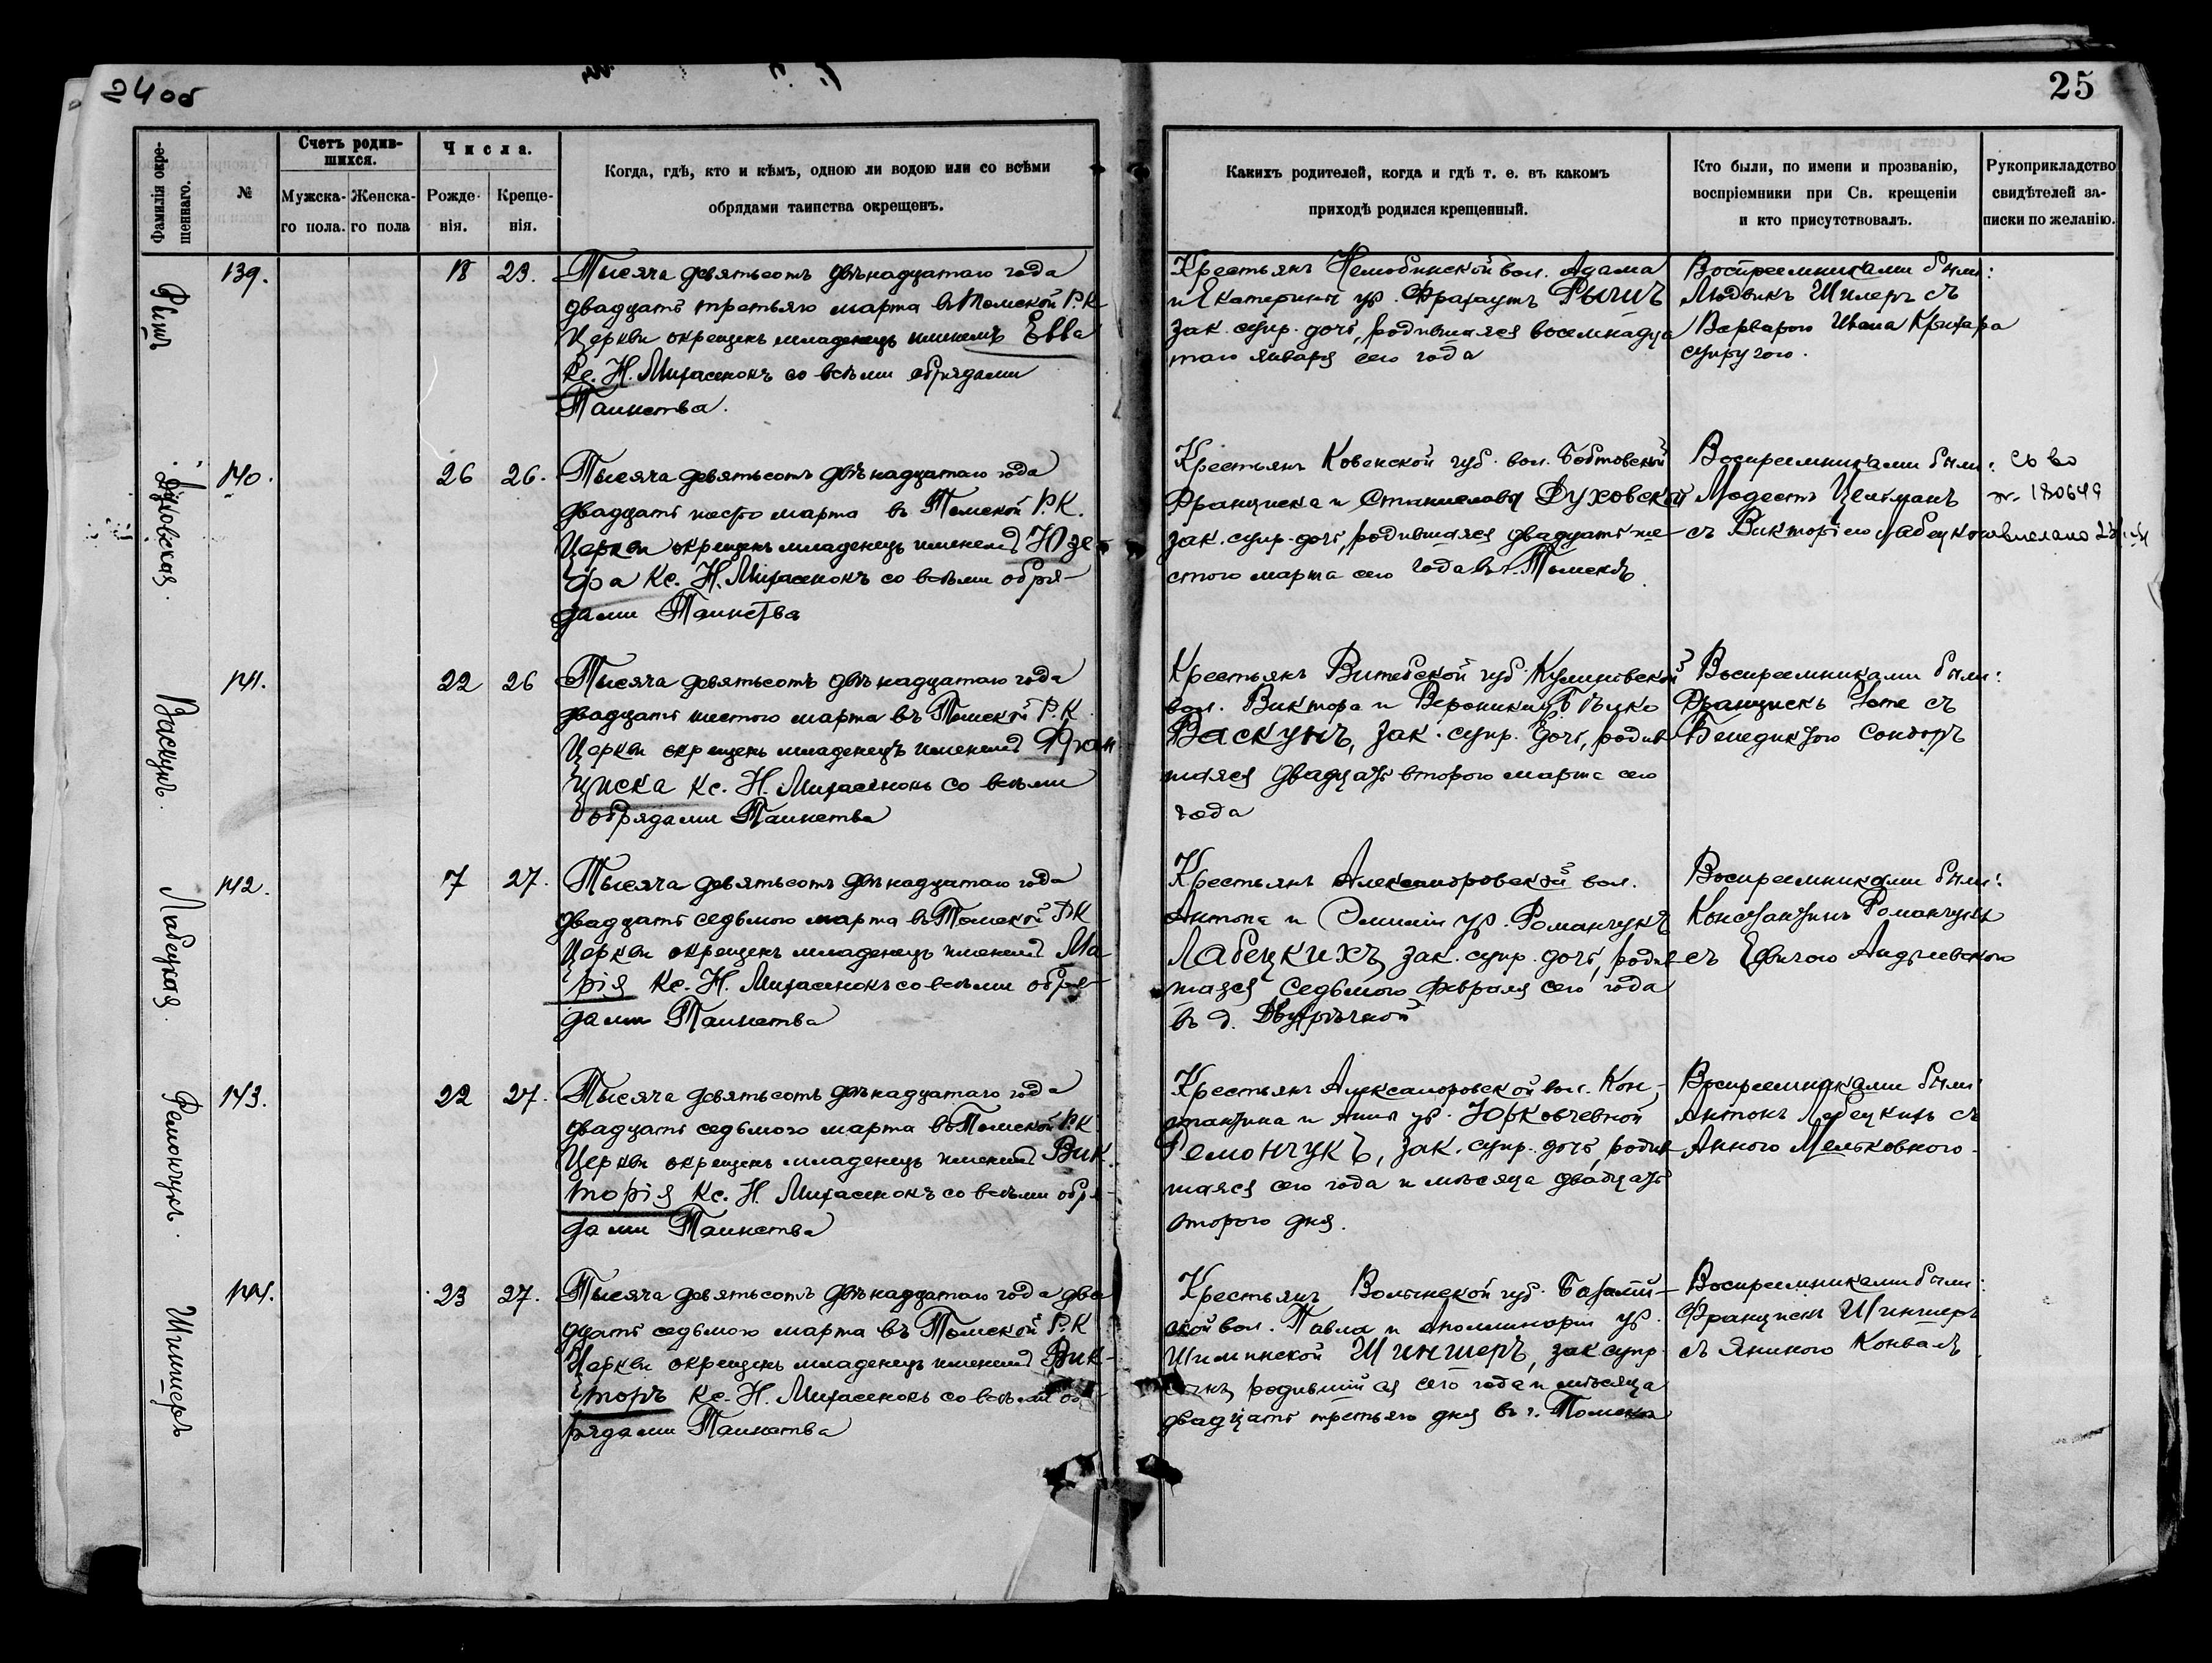 24 об
25
Фамилія окре-
щеннаго.
№
Счетъ родив-
шихся.
Мужска-
го пола.
Женска-
го пола
Числа.
Рожде-
нія.
Креще-
нія.
Когда, гдѣ, кто и кѣмъ, одною ли водою или со всѣми
обрядами таинства окрещенъ.
Какихъ родителей, когда и гдѣ т. е. въ какомъ
приходѣ родился крещенный.
Кто были, по имени и прозванію,
воспріемники при Св. крещеніи
и кто присутствовалъ.
Рукоприкладство
свидѣтелей за-
писки по желанію.
139.
18
23.
Тысяча девятьсотъ двѣнадцатаго года
двадцать третьяго марта въ Томской Р.К
Церкви окрещенъ младенецъ именемъ Евва
Кс. Н. Михасенокъ со всѣми обрядами
Таинства.
Крестьянъ вол. Адама
и Екатерины ур.
зак. супр. дочь, родившаяся восемнадца
таго января сего года
Воспреемниками были:
Людвикъ Шилеръ съ
Варварою Ивана
супругою.
Духовская.
140.
26
26.
Тысяча девятьсотъ двѣнадцатаго года
двадцать шесто марта въ Томской Р.К.
Церкви окрещенъ младенецъ именемъ Юзе-
фа Кс. Н. Михасенокъ со всѣми обря-
дами Таинства
Крестьянъ Ковенской губ. вол. Бобтовской
Франциска и Станиславы Духовской
зак. супр. дочь, родившаяся двадцать ше
стого марта сего года въ г. Томскѣ.
Воспреемниками были:
Модестъ Цельманъ
съ Викторіею
съ во
180649
Васкунъ.
141.
22
26
Тысяча девятьсотъ двѣнадцатаго года
двадцать шестого марта въ Томской Р.К
Церкви окрещенъ младенецъ именемъ Фран
циска Кс. Н. Михасенокъ со всѣми
обрядами Таинства
Крестьянъ Витебской губ.
вол. Виктора и Вероники
Васкунъ, зак. супр. дочь, родив
шаяся двадцать второго марта сего
года
Воспреемниками были:
Францискъ съ
Бенедиктою
Лабецкая.
142.
7
27.
Тысяча девятьсотъ двѣнадцатаго года
двадцать седьмого марта въ Томской Р.К
Церкви окрещенъ младенецъ именемъ Ма-
рія Кс. Н. Михасенокъ со всѣми обря-
дами Таинства
Крестьянъ Александровской вол.
Антона и Эмиліи ур. Романчукъ
Лабецкихъ, зак. супр. дочь, родив
шаяся седьмого февраля сего года
въ д. Двурѣчной
Воспреемниками были:
Константинъ Романчукъ
съ
Ремончукъ.
143.
22
27.
Тысяча девятьсотъ двѣнадцатаго года
двадцать седьмого марта въ Томской Р.К
Церкви окрещенъ младенецъ именемъ Вик-
торія Кс. Н. Михасенокъ со всѣми обря-
дами Таинства
Крестьянъ Александровской вол. Кон-
стантина и Анны ур.
Ремончукъ, зак. супр. дочь, родив-
шаяся сего года и мѣсяца двадцать
второго дня.
Воспреемниками были
Антонъ Лабецкихъ съ
Анною
Шиншеръ
144.
23
27.
Тысяча девятьсотъ двѣнадцатаго года два
дцать седьмого марта въ Томской Р.К
Церкви окрещенъ младенецъ именемъ Вик-
торъ Кс. Н. Михасенокъ со всѣми об-
рядами Таинства
Крестьянъ Волынской губ.
ской вол. Павла и Аполлинаріи ур.
Шиминской Шиншеръ, зак супр
сынъ, родившійся сего года и мѣсяца
двадцать третьяго дня въ г. Томскѣ
Воспреемниками были:
Францискъ Шиншеръ
съ